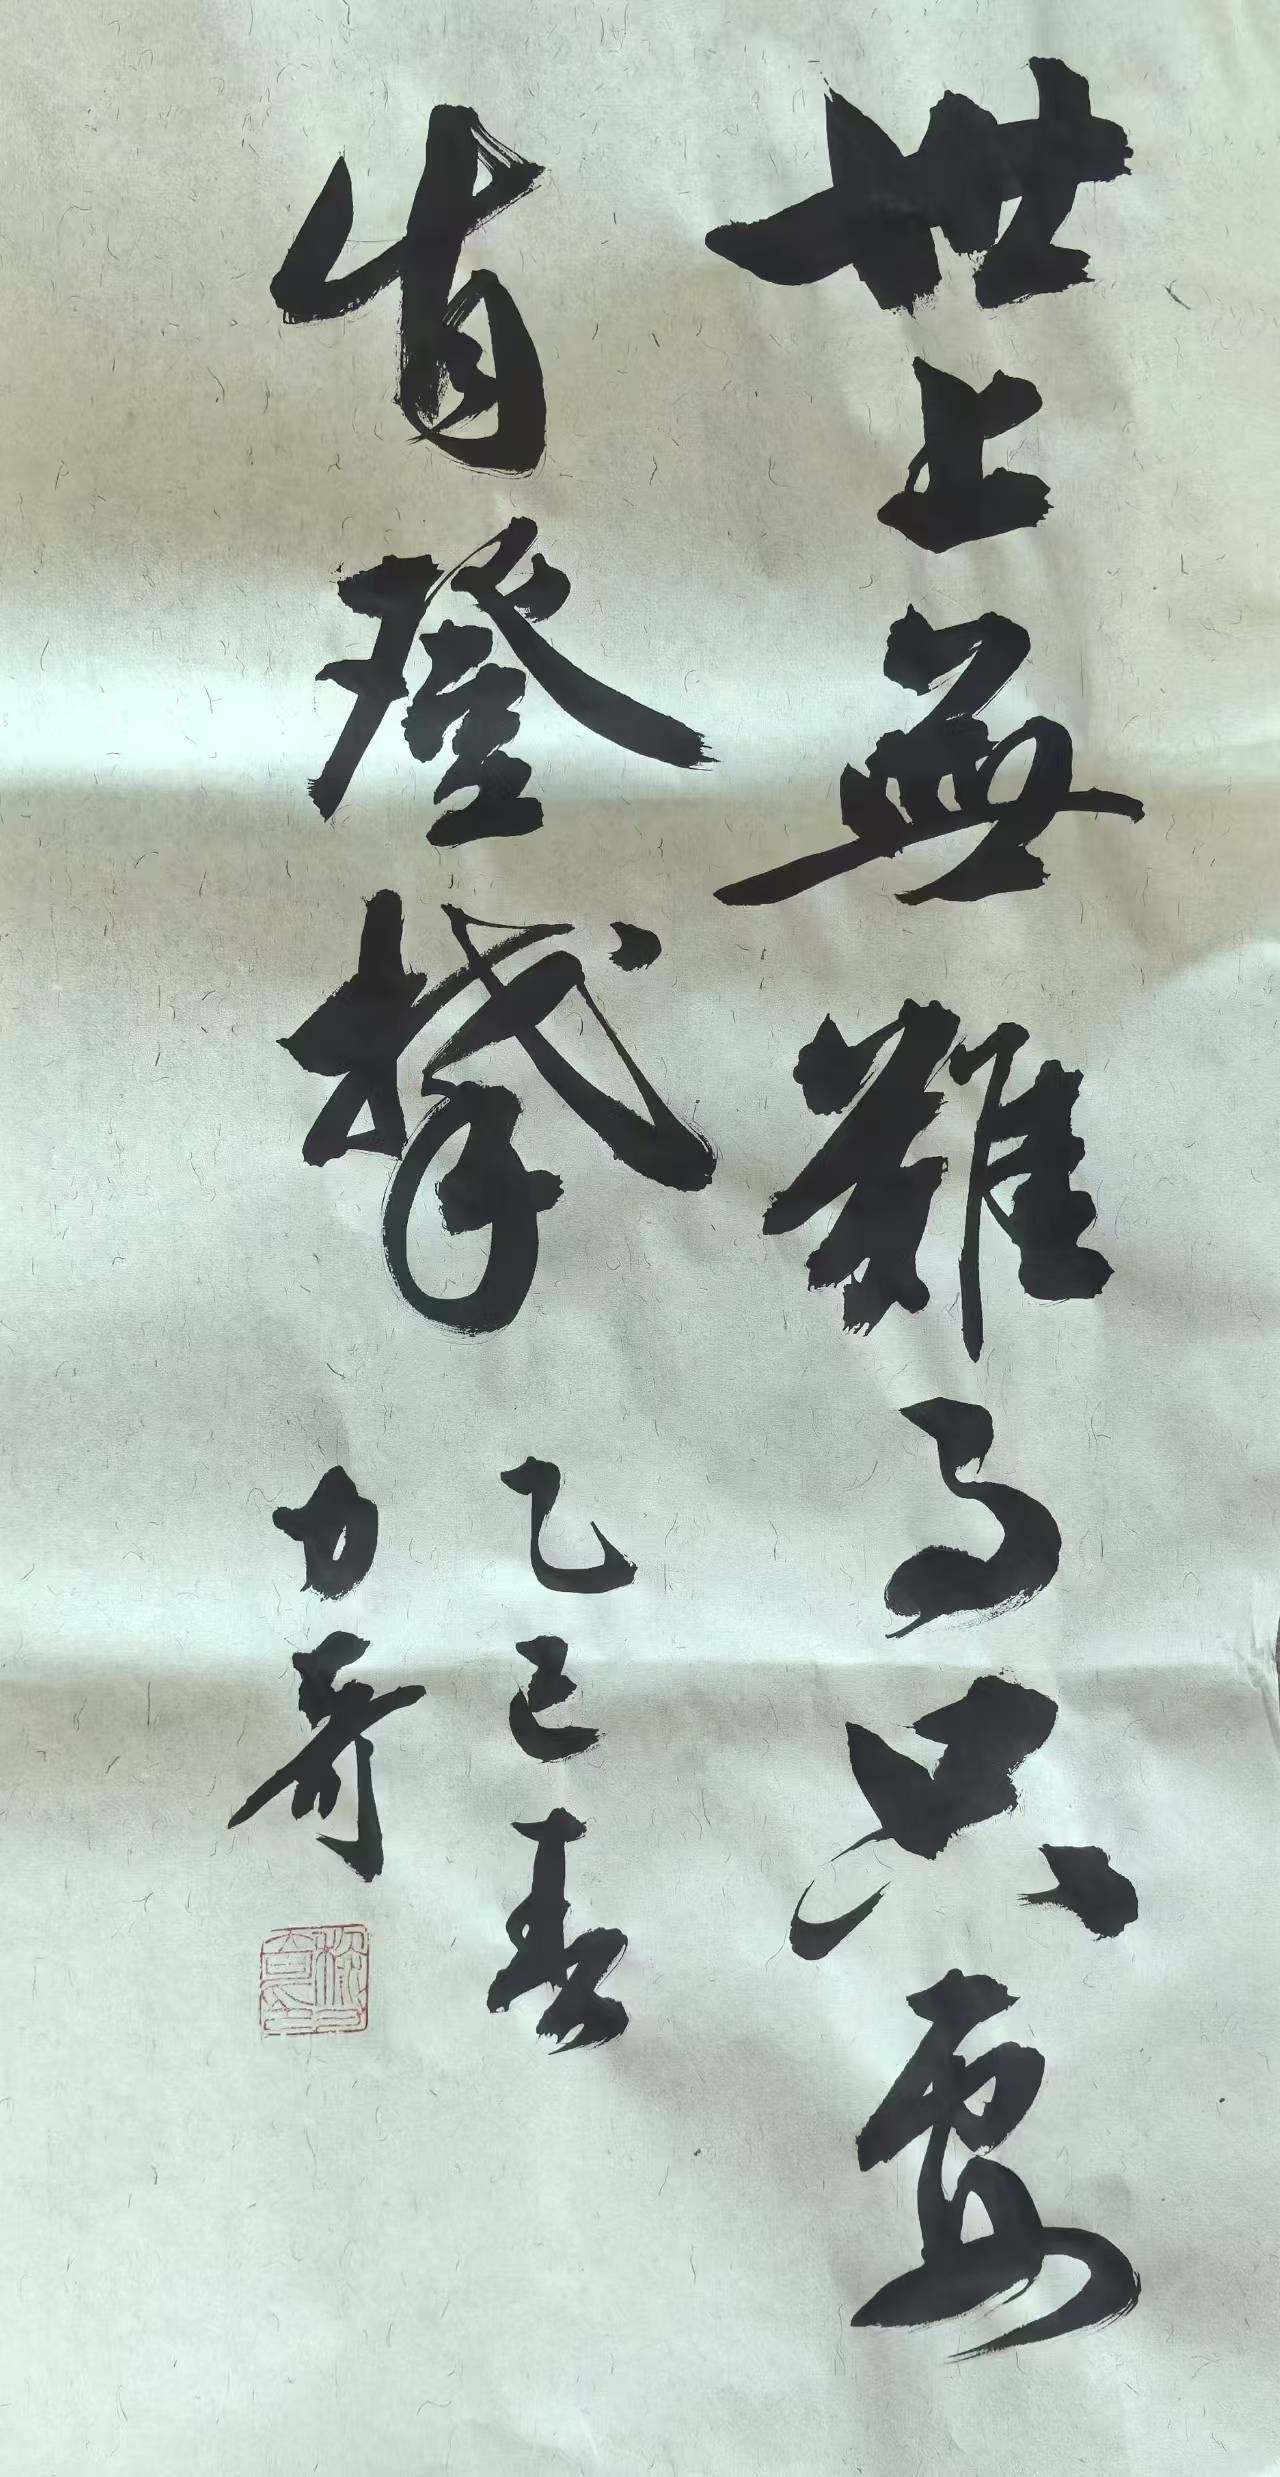 世上無難事只要
肯登攀
乙巳春
力哥